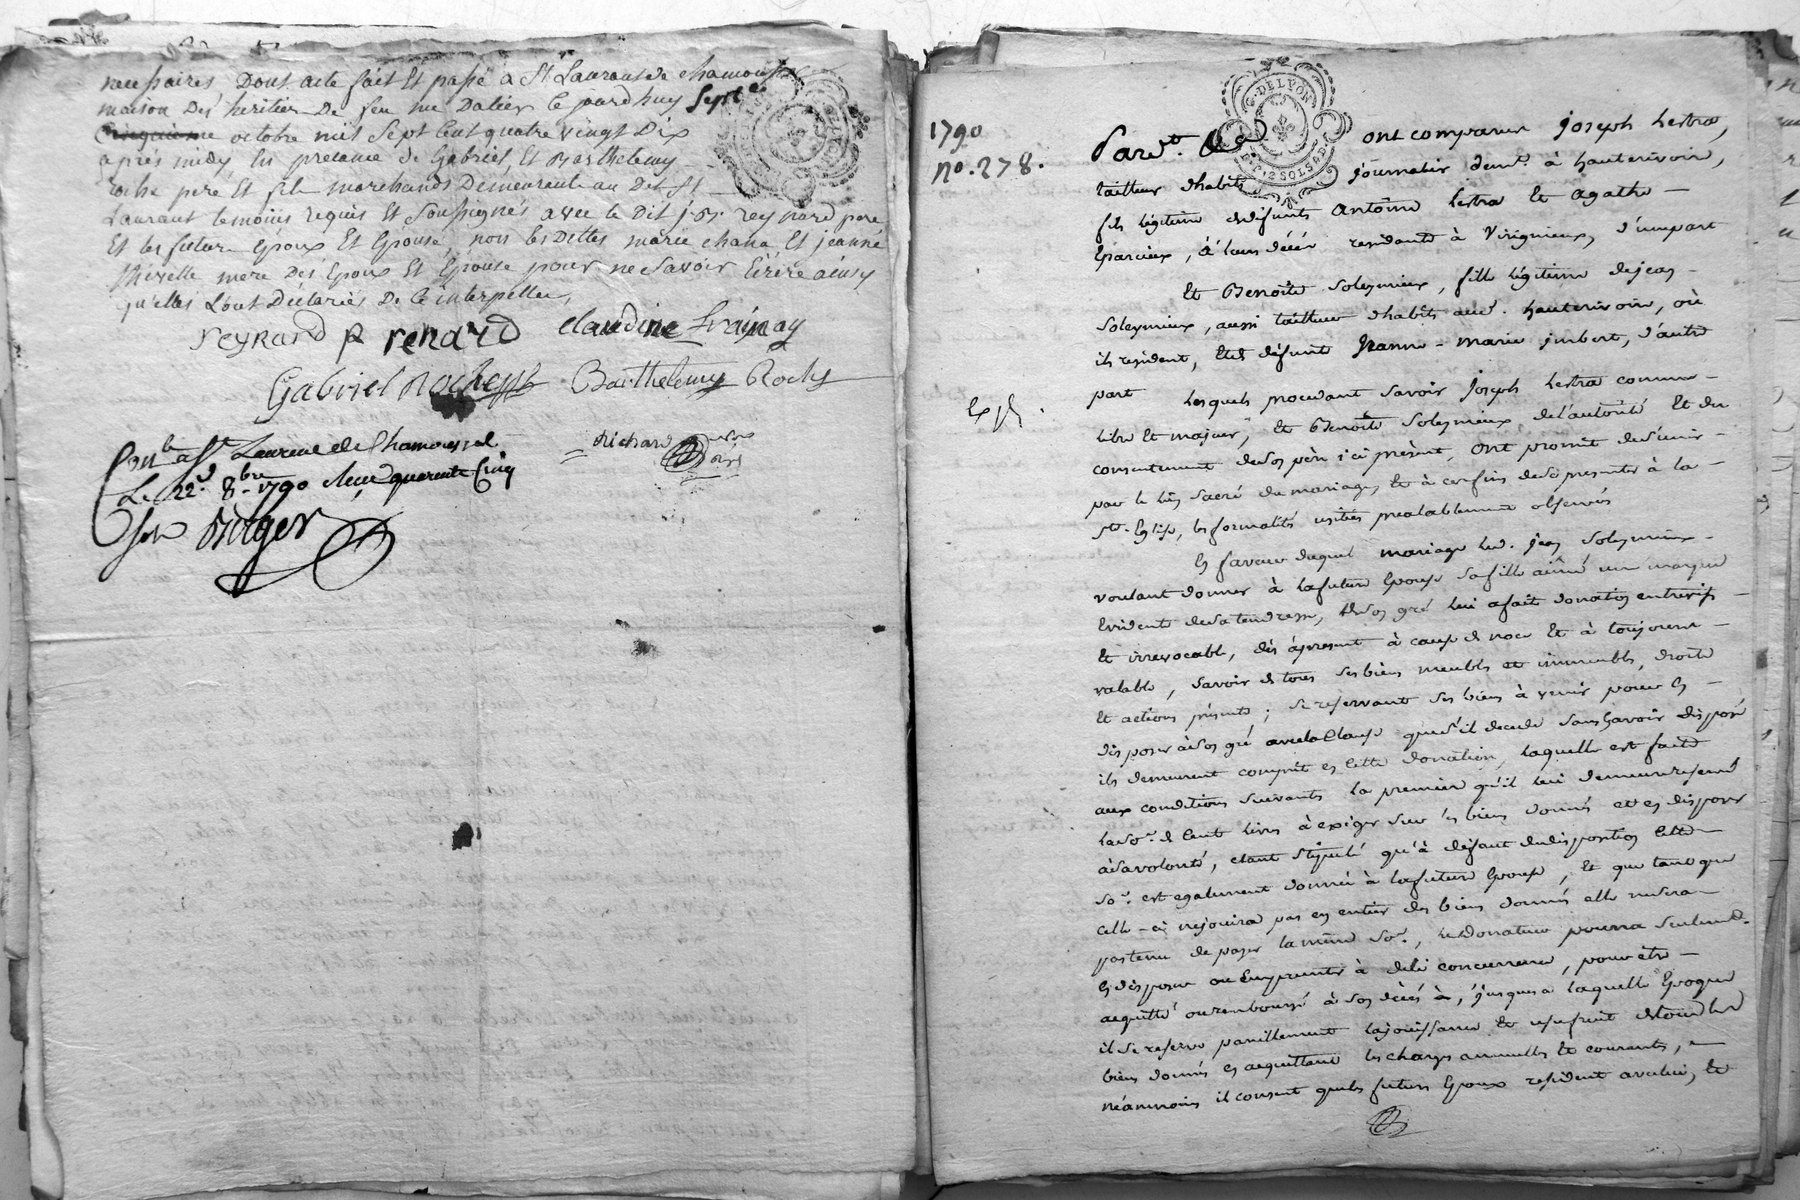 necessaires, Dont acte fait Et passé a St Laurent de chamousset
maison Des heritiers De feu me Dalier le jourdhuy Septe
Cinquieme octobre mil Sept Cent quatre vingt Dix
après midy En presance de Gabriel, Et Barthelemy
roche pere Et fils marchands Demeurants au Dit St
Laurant temoins requis Et Soussignés avec le Dit reynard pere
Et les futurs Epoux Et Epouse, non les Dittes marie chana Et jeanne
mere Des Epoux Et Epouse pour ne Savoir Ecrire ainsy
qu'elles L'ont Déclarées De Ce interpellées
reynard p renard Claudine
Gabriel Roche Barthelemy Roche
richard
Conlé a St Laurent de Chamousset
Le 22 8bre 1790 quarente Cinq
Berger
G. DE LYON
E.P. 2 SOLS 4 D.
1790
no. 278.
Pardt. ont comparu Joseph Lestra,
tailleur d'habits journalier demt à hauterivoire,
fils légitime de défunts Antoine Lestra et Agathe
Eparcieux, à leurs décès residants à Virignieux, d'une part
Et Benoite Soleymieux, fille légitime de jean
Soleymieux, aussi tailleur d'habits aud. hauterivoire, où
ils resident, et de défunte Jeanne-marie jmbert, d'autre
part Lesquels procedant savoir Joseph Lestra comme
libre Et majeur, et Benoite Soleymieux de l'autorité Et du
Exp.
consentement de son père ici présent, ont promit de s'unir
par le lien sacré du mariage, et à ces fins de se presenter à la
Ste. Eglise, les formalités usitées prealablement observées
En faveur duquel mariage led. jean Soleymieux
voulant donner à la future Epouse sa fille ainée une marque
Evidente de sa tendresse, de son gré lui a fait donation entrevifs
Et irrevocable, dès àpresent à cause de noce Et à toujours
valable, savoir de tous ses biens meubles et immeubles, droits
Et actions présents; se reservant ses biens à venir pour En
disposer à son gré avec la Clause que s'il decede sans En avoir disposé
ils demeurent compris en cette donation, laquelle est faite
aux conditions suivantes la premiere qu'il lui demeure reservé
la so.e de Cent livres à exiger sur les biens donnés et en disposer
à sa volonté, etant stipulé qu'à défaut de disposition cette
so.e est egalement donnée à la future Epouse, Et que tant que
celle-ci ne jouira pas en entier des biens donnés elle ne sera
pas tenue de payer la même so.e, le donateur pourra seulemt.
En disposer ou Emprunter à due concurrence, pour être
acquitté ou remboursé à son décès à, jusques a laquelle Epoque
il se reserve pareillement la jouissance et usufruit de tous les
biens donnés en acquittant les charges annuelles et courantes,
néanmoins il consent que les futurs Epoux resident avec lui, et